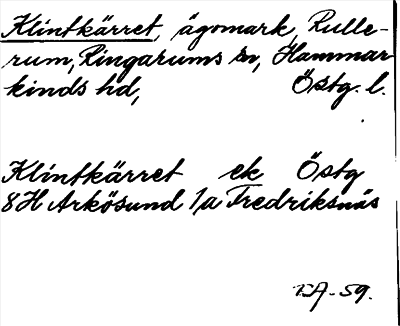 Klintkärret, ägomark, Rulle-
rum, Ringarums sn, Hammar-
kinds hd, Östg. l.
Klintkärret ek Östg
8H Arkösund 1a Fredriksnäs
EA-59.